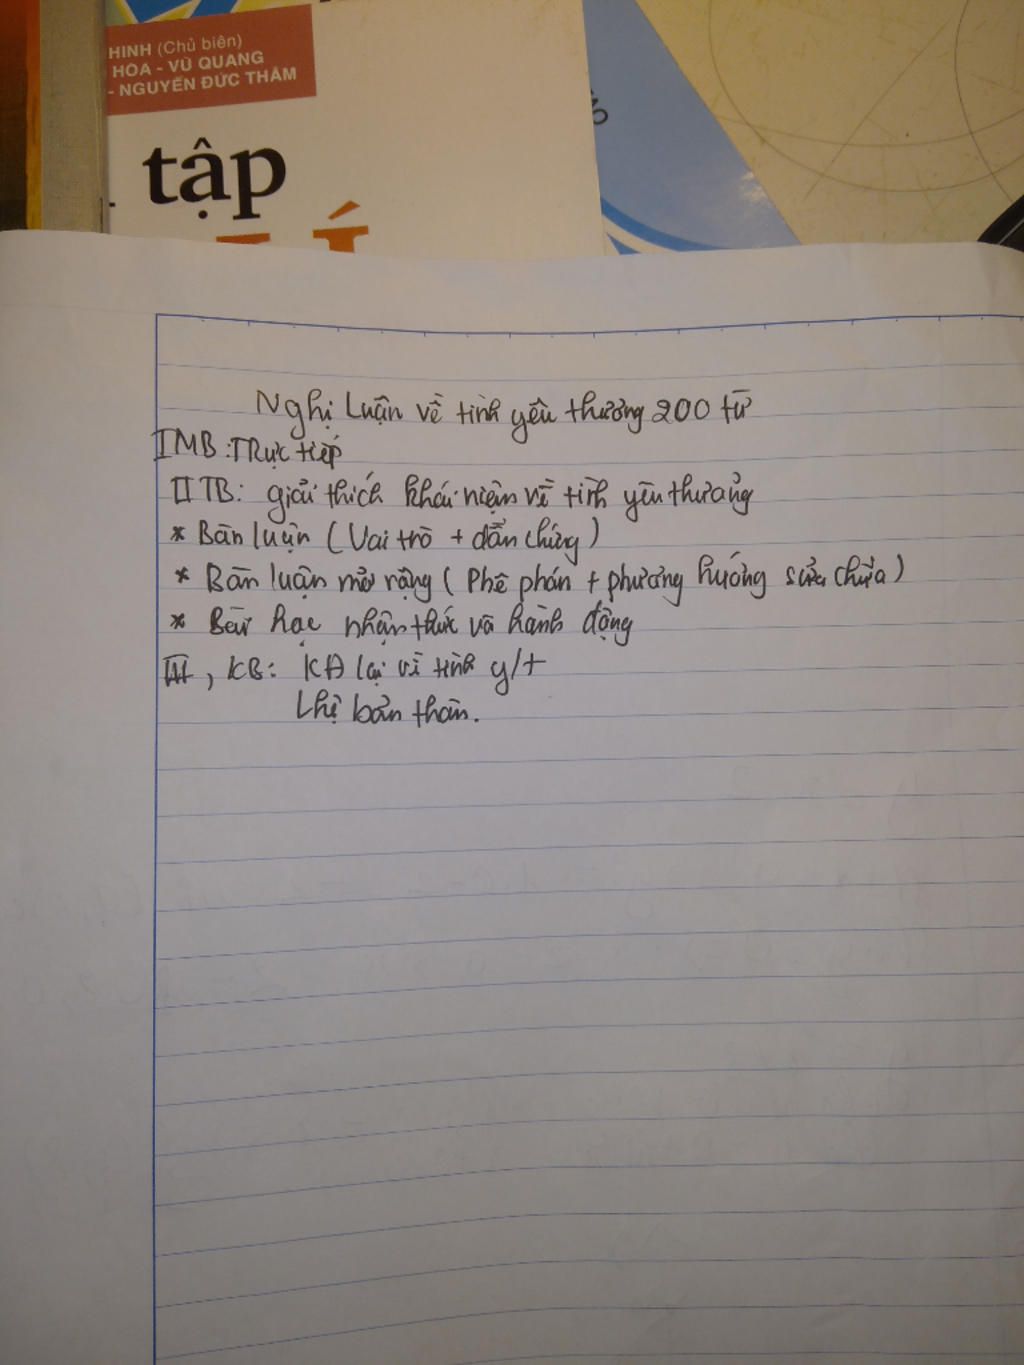 HINH (Chủ biên)
HÒA - VŨ QUANG
- NGUYỄN ĐỨC THÂM
tập
Nghị Luận về tình yêu thương 200 từ
I MB: Trực tiếp
II TB: giải thích khái niệm về tình yêu thương
* Bàn luận (Vai trò + dẫn chứng)
* Bàn luận mở rộng (Phê phán + phương hướng sửa chữa)
* Bài học nhận thức và hành động
III, KB: KĐ lại về tình y/t
Lhệ bản thân.